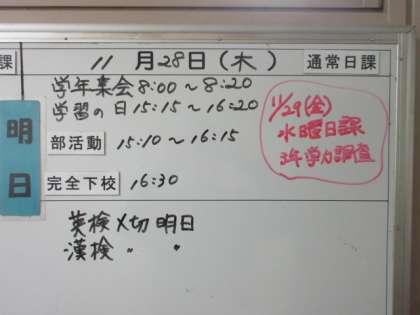 課 11月28日(木) 通常日課
学年集会 8:00〜8:20
学習の日 15:15〜16:20
明日
部活動 15:10〜16:15
完全下校 16:30
11/29(金)
水曜日課
3年学力調査
英検〆切 明日
漢検 〃 〃